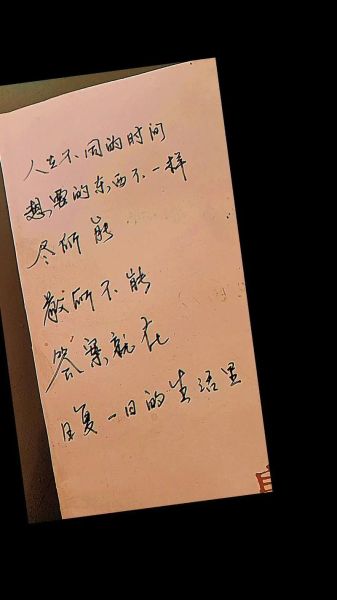 人在不同的时间
想要的东西不一样
尽所能
敬所不能
答案就在
日复一日的生活里